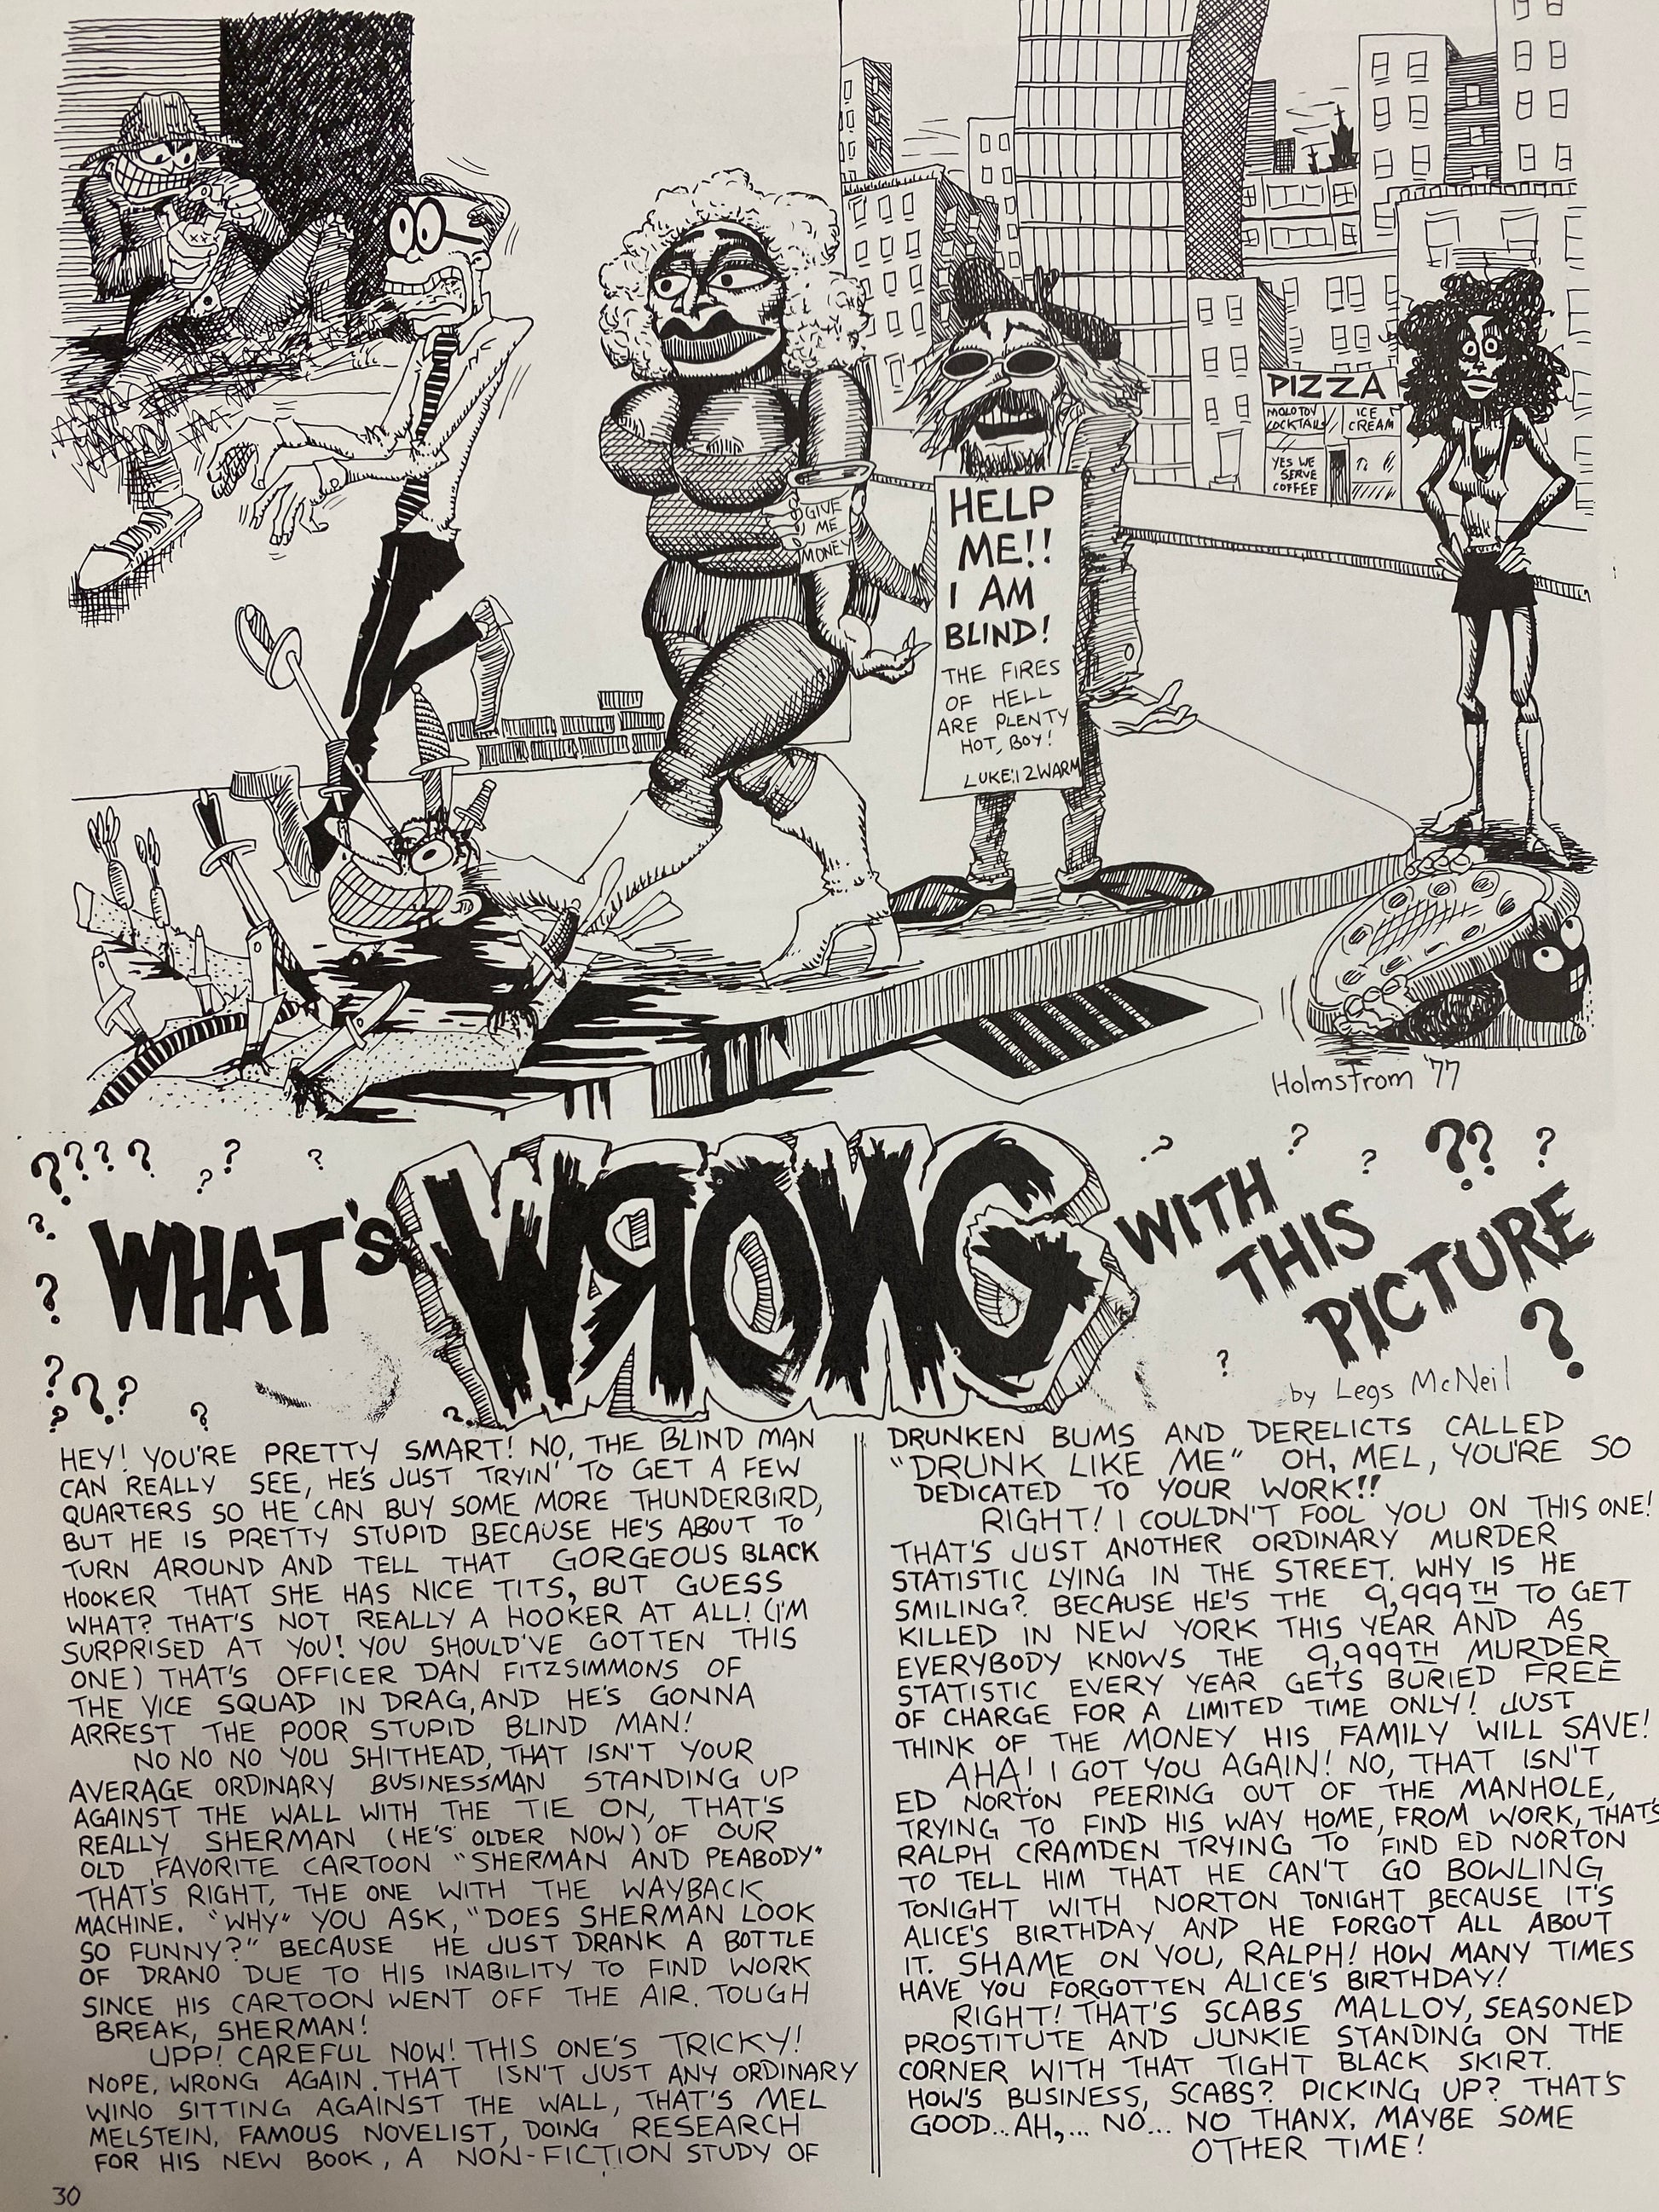 PIZZA
MOLOTOV
COCKTAIL
ICE
CREAM
YES WE
SERVE
COFFEE
XX
GIVE
ME
MONEY
HELP
ME!!
I AM
BLIND!
THE FIRES
OF HELL
ARE PLENTY
HOT, BOY!
LUKE:12WARM
Holmstrom '77
WHAT'S WRONG WITH
THIS
PICTURE
?
by Legs McNeil
HEY! YOU'RE PRETTY SMART! NO, THE BLIND MAN
CAN REALLY SEE, HE'S JUST TRYIN' TO GET A FEW
QUARTERS SO HE CAN BUY SOME MORE THUNDERBIRD,
BUT HE IS PRETTY STUPID BECAUSE HE'S ABOUT TO
TURN AROUND AND TELL THAT GORGEOUS BLACK
HOOKER THAT SHE HAS NICE TITS, BUT GUESS
WHAT? THAT'S NOT REALLY A HOOKER AT ALL! (I'M
SURPRISED AT YOU! YOU SHOULD'VE GOTTEN THIS
ONE) THAT'S OFFICER DAN FITZSIMMONS OF
THE VICE SQUAD IN DRAG, AND HE'S GONNA
ARREST THE POOR STUPID BLIND MAN!
NO NO NO YOU SHITHEAD, THAT ISN'T YOUR
AVERAGE ORDINARY BUSINESSMAN STANDING UP
AGAINST THE WALL WITH THE TIE ON, THAT'S
REALLY SHERMAN (HE'S OLDER NOW) OF OUR
OLD FAVORITE CARTOON "SHERMAN AND PEABODY"
THAT'S RIGHT, THE ONE WITH THE WAYBACK
MACHINE. "WHY" YOU ASK, "DOES SHERMAN LOOK
SO FUNNY?" BECAUSE HE JUST DRANK A BOTTLE
OF DRANO DUE TO HIS INABILITY TO FIND WORK
SINCE HIS CARTOON WENT OFF THE AIR. TOUGH
BREAK, SHERMAN!
UPP! CAREFUL NOW! THIS ONE'S TRICKY!
NOPE, WRONG AGAIN. THAT ISN'T JUST ANY ORDINARY
WINO SITTING AGAINST THE WALL, THAT'S MEL
MELSTEIN, FAMOUS NOVELIST, DOING RESEARCH
FOR HIS NEW BOOK, A NON-FICTION STUDY OF
DRUNKEN BUMS AND DERELICTS CALLED
"DRUNK LIKE ME" OH, MEL, YOU'RE SO
DEDICATED TO YOUR WORK!!
RIGHT! I COULDN'T FOOL YOU ON THIS ONE!
THAT'S JUST ANOTHER ORDINARY MURDER
STATISTIC LYING IN THE STREET. WHY IS HE
SMILING? BECAUSE HE'S THE 9,999TH TO GET
KILLED IN NEW YORK THIS YEAR AND AS
EVERYBODY KNOWS THE 9,999TH MURDER
STATISTIC EVERY YEAR GETS BURIED FREE
OF CHARGE FOR A LIMITED TIME ONLY! JUST
THINK OF THE MONEY HIS FAMILY WILL SAVE!
AHA! I GOT YOU AGAIN! NO, THAT ISN'T
ED NORTON PEERING OUT OF THE MANHOLE,
TRYING TO FIND HIS WAY HOME, FROM WORK, THAT'S
RALPH CRAMDEN TRYING TO FIND ED NORTON
TO TELL HIM THAT HE CAN'T GO BOWLING
TONIGHT WITH NORTON TONIGHT BECAUSE IT'S
ALICE'S BIRTHDAY AND HE FORGOT ALL ABOUT
IT. SHAME ON YOU, RALPH! HOW MANY TIMES
HAVE YOU FORGOTTEN ALICE'S BIRTHDAY!
RIGHT! THAT'S SCABS MALLOY, SEASONED
PROSTITUTE AND JUNKIE STANDING ON THE
CORNER WITH THAT TIGHT BLACK SKIRT.
HOW'S BUSINESS, SCABS? PICKING UP? THAT'S
GOOD... AH,... NO... NO THANX. MAYBE SOME
OTHER TIME!
30